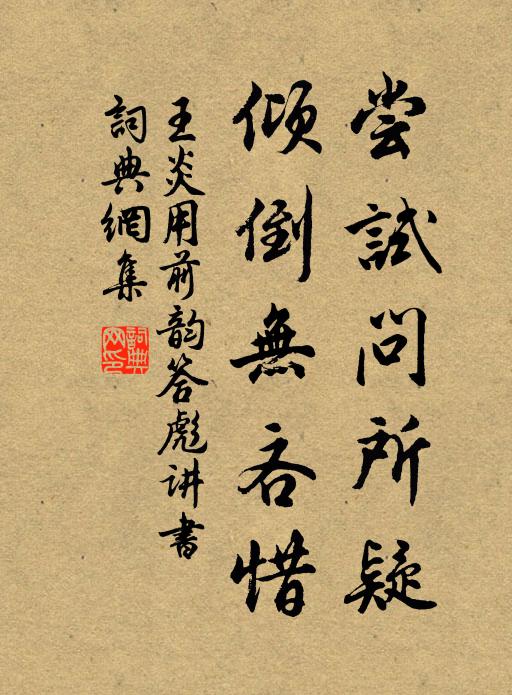 尝試問所疑
傾倒無吝惜
王炎用前韵答彪讲書
詞典網集
詞典網印